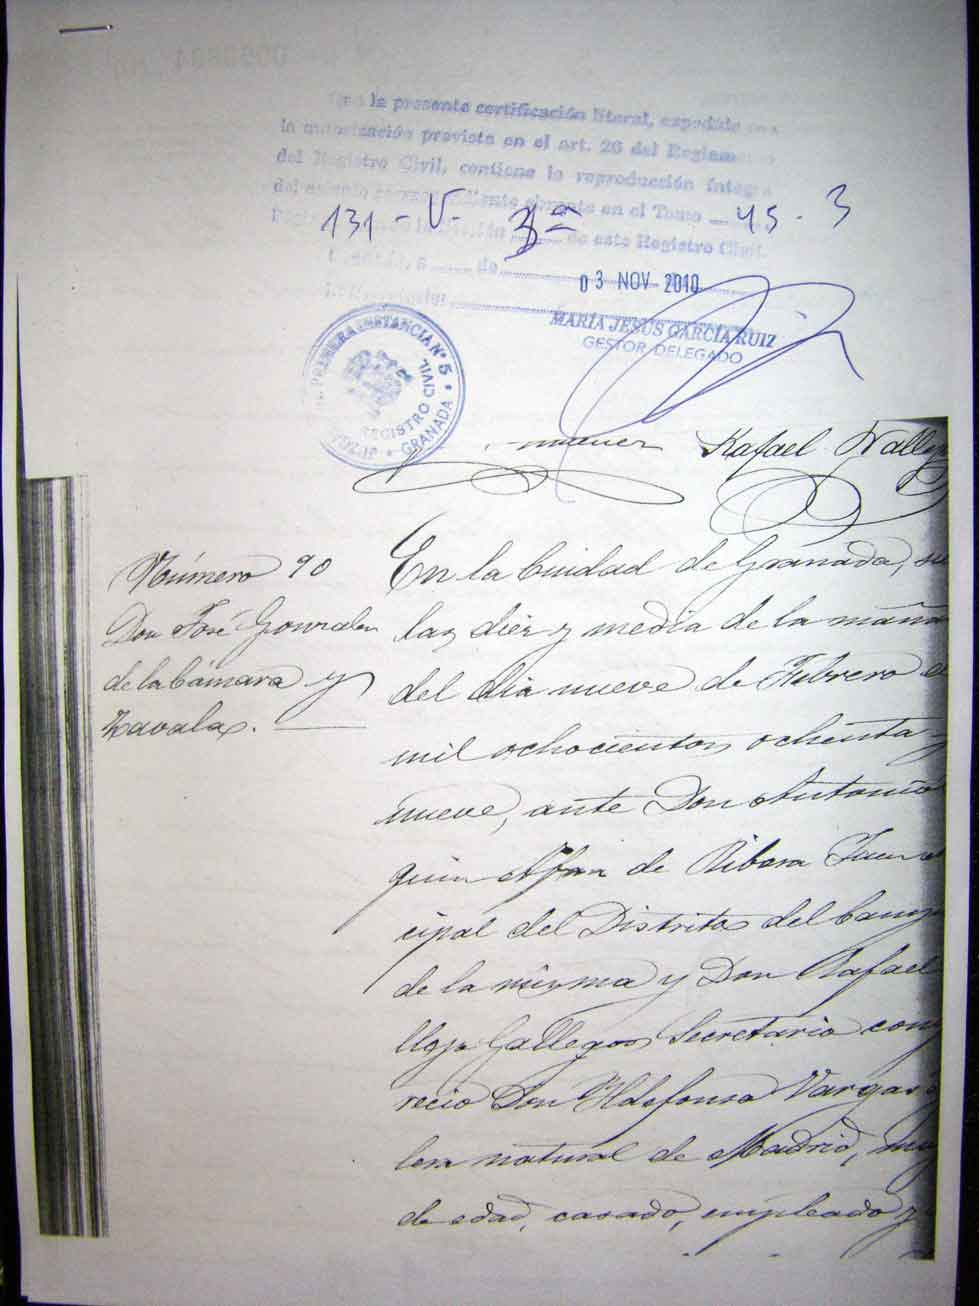 la presente certificación literal, expedida con
la autorización prevista en el art. 26 del Reglamento
del Registro Civil, contiene la reproducción íntegra
del asiento correspondiente obrante en el Tomo 45-3
131-V- 3ª de este Registro Civil.
de
03 NOV 2010
MARÍA JESÚS GARCÍA RUIZ
GESTOR DELEGADO
PRIMERA INSTANCIA Nº 5
REGISTRO CIVIL
GRANADA
Rafael Vallejo
Número 90
Don José Gonzalez
de la Cámara y
Zavala.
En la Ciudad de Granada,
las diez y media de la maña
del dia nueve de Febrero
mil ochocientos ochenta y
nueve, ante Don Antonio
quin Afan de Ribera Juez
cipal del Distrito del Camp
de la misma y Don Rafael
llejo Gallegos Secretario com
recio Don Yldefonso Vargas
lera natural de Madrid,
de edad, casado, empleado y